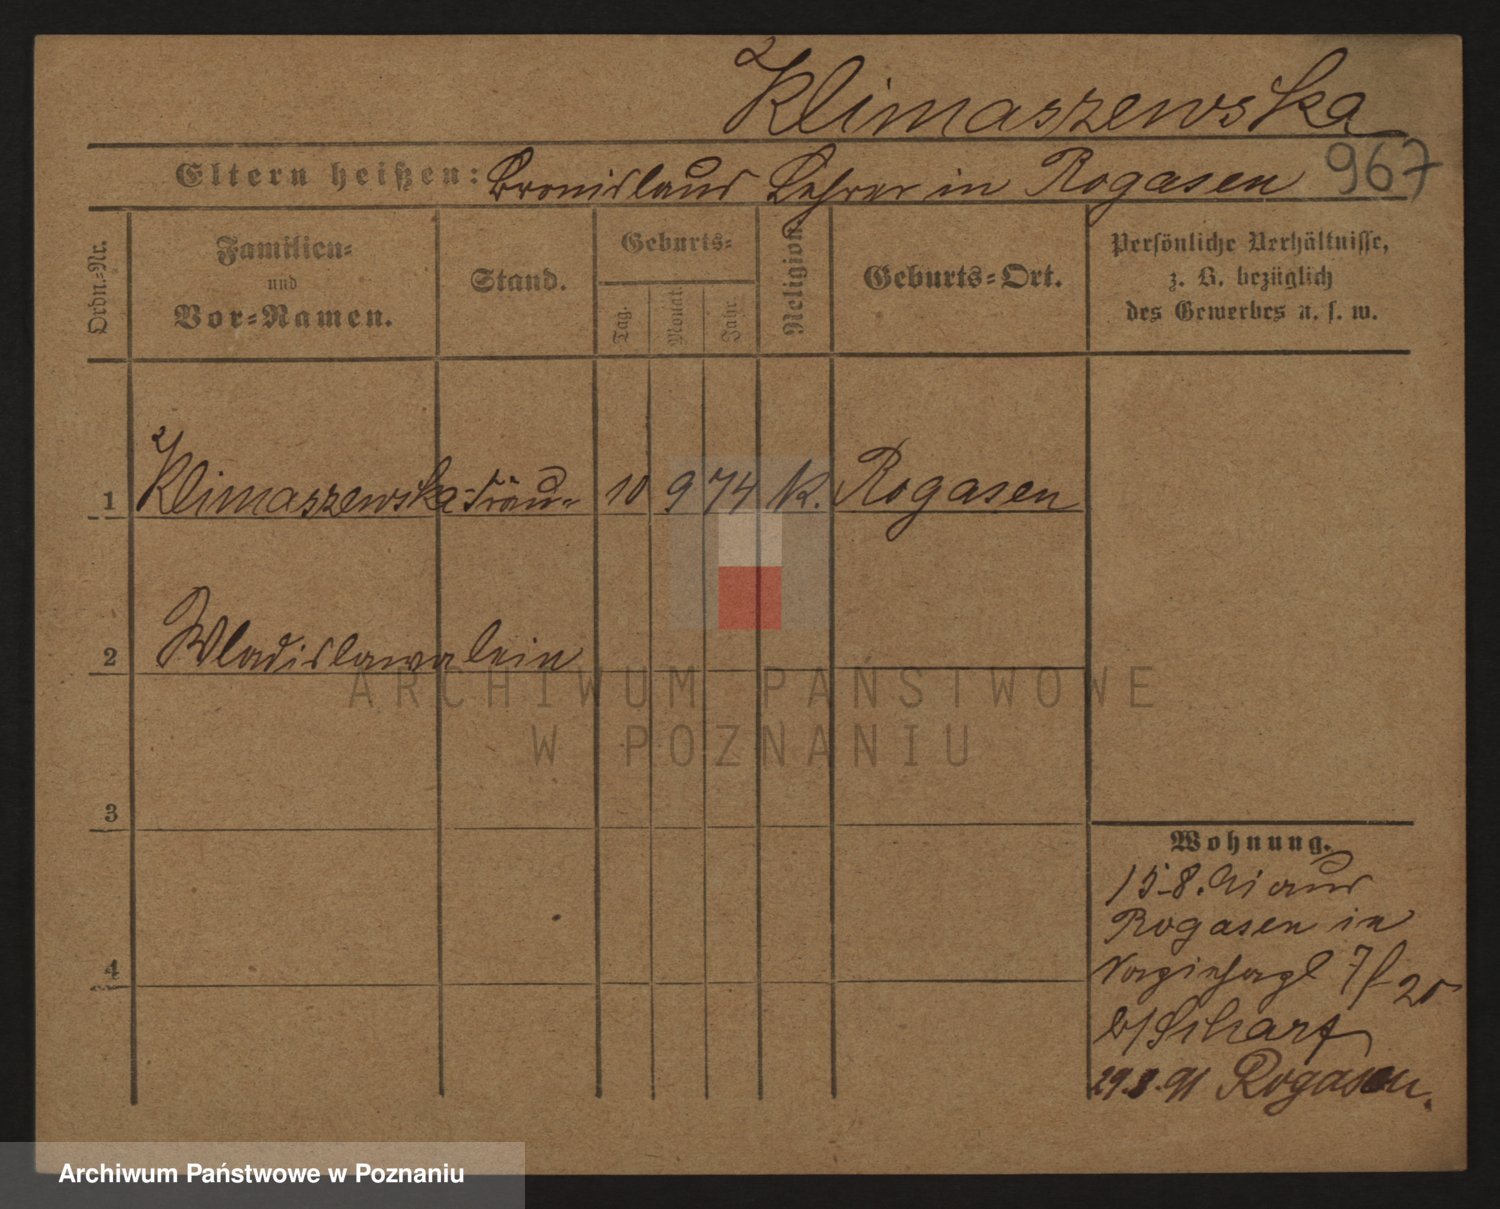 Klimaszewska
Eltern heißen: Bronislaus Lehrer in Rogasen 967
Ordn.-Nr.
Familien-
und
Vor-Namen.
Stand.
Geburts-
Tag.
Monat.
Jahr.
Religion.
Geburts-Ort.
Persönliche Verhältnisse,
z. B. bezüglich
des Gewerbes u. s. w.
1 Klimaszewska Fräu- 10 9 74 K. Rogasen
2 Wladislawa lein
ARCHIWUM PAŃSTWOWE
W POZNANIU
3
Wohnung.
15.8.91 aus
Rogasen in
4
7/8 20
b/ Scharf
29.8.91 Rogasen.
Archiwum Państwowe w Poznaniu